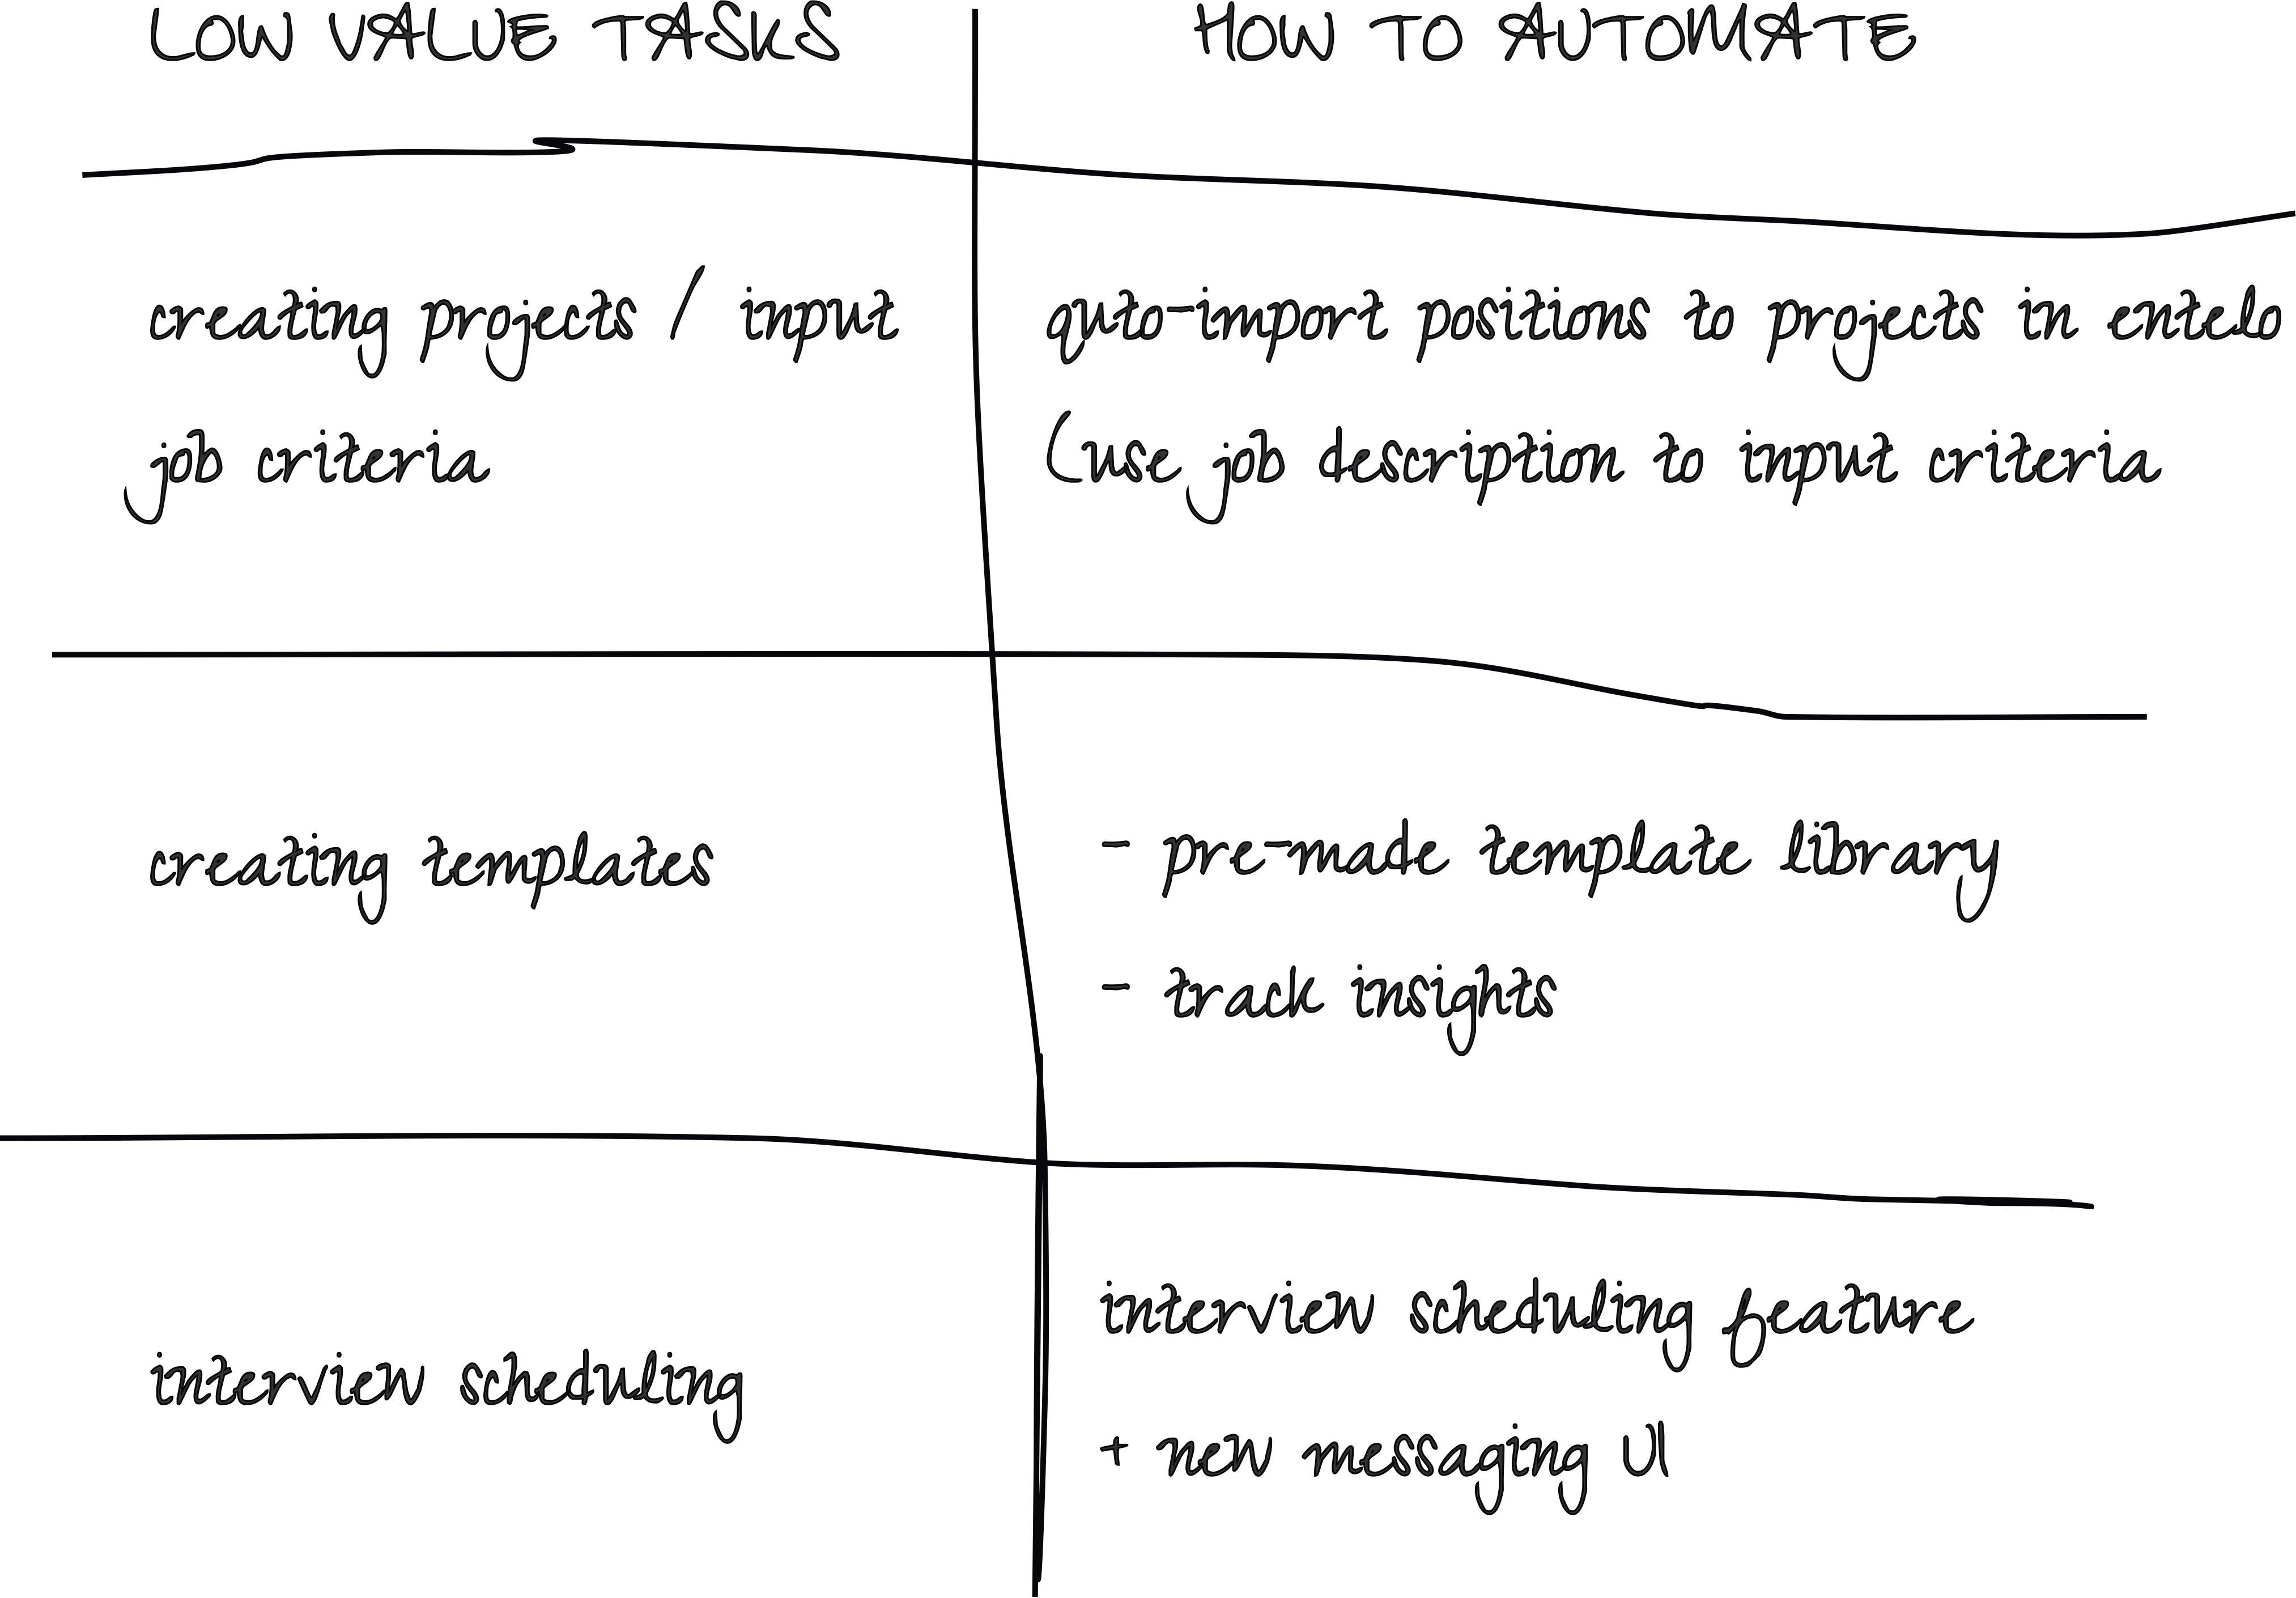 LOW VALUE TASKS
HOW TO AUTOMATE
creating projects / input
job criteria
quto-import positions to projects in entelo
(use job description to input criteria
creating templates
- pre-made template library
- track insights
interview scheduling
interview scheduling feature
+ new messaging UI